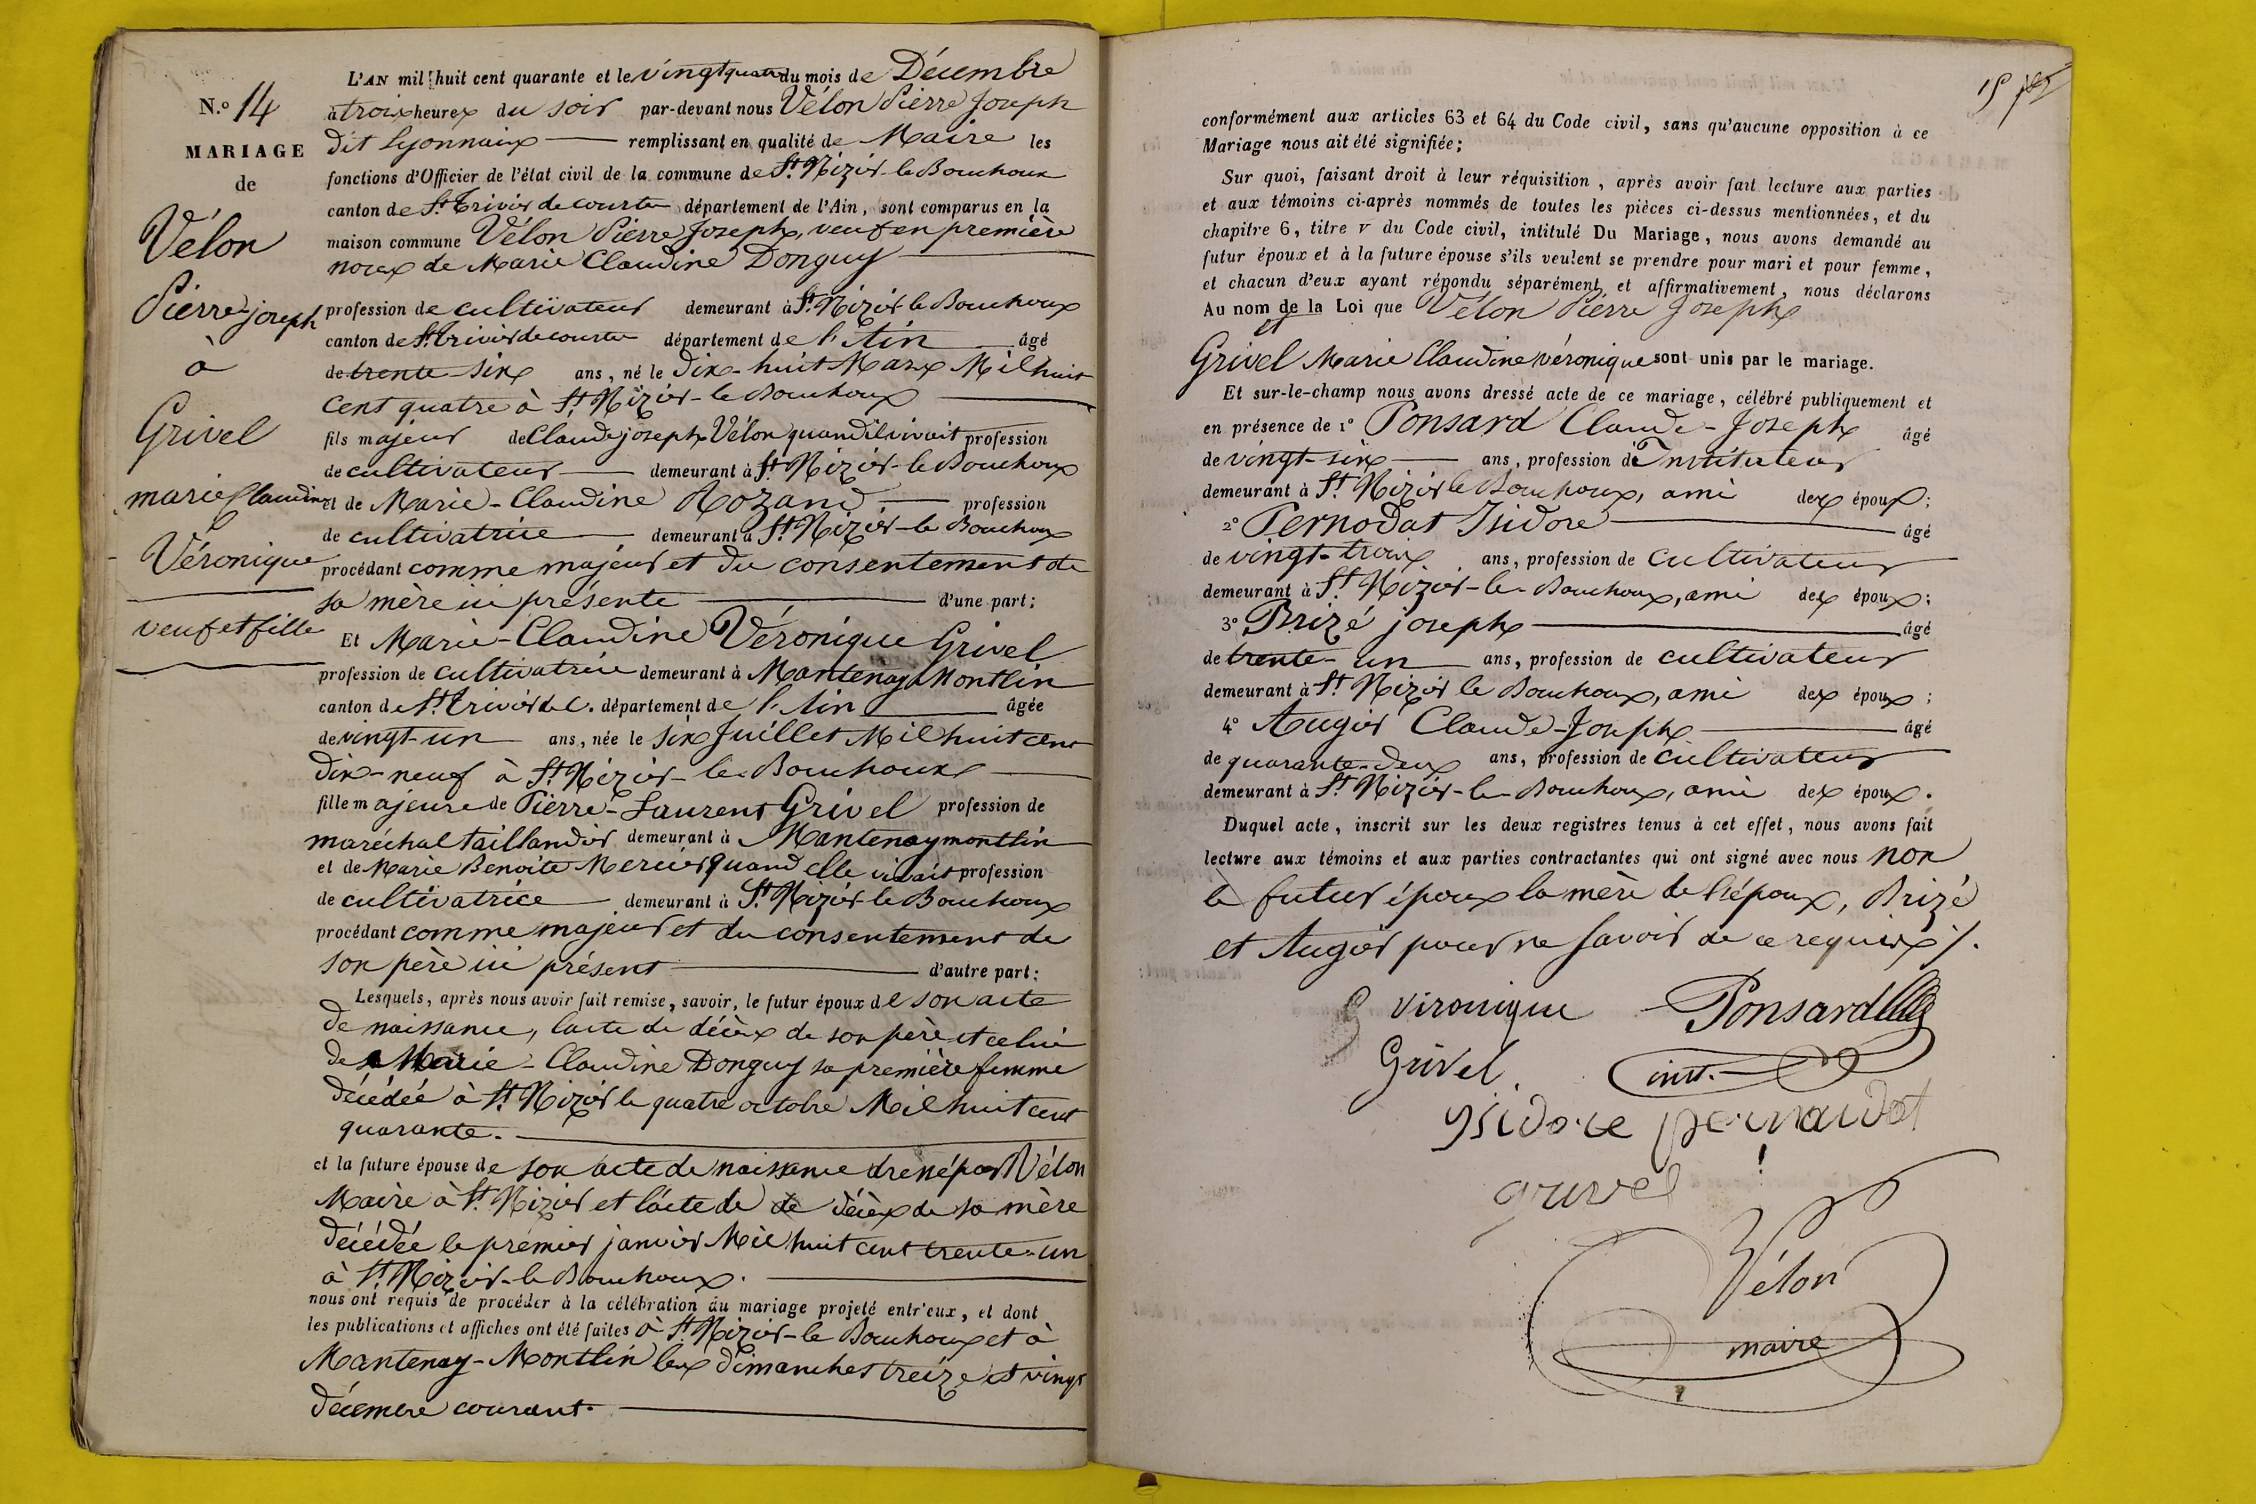 N.o 14
MARIAGE
de
Vélon
Pierre joseph
à
Grivel
marie Claudine
Véronique
veuf et fille
L'AN mil huit cent quarante et le vingt quatre du mois de Décembre
à trois heures du soir par-devant nous Vélon Pierre Joseph
dit Lyonnais remplissant en qualité de Maire les
fonctions d'Officier de l'état civil de la commune de St. Nizier-le Bouchoux
canton de St. Trivier de courtes département de l'Ain, sont comparus en la
maison commune Vélon Pierre Joseph, veuf en première
noces de Marie Claudine Donguy
profession de cultivateur demeurant à St. Nizier-le Bouchoux
canton de St. Trivier de courtes département de l'Ain âgé
de trente-six ans, né le Dix-huit Mars Mil huit
cent quatre à St. Nizier-le Bouchoux
fils majeur de Claude joseph Vélon quand il vivait profession
de cultivateur demeurant à St. Nizier-le Bouchoux
et de Marie-Claudine Rozand profession
de cultivatrice demeurant à St. Nizier-le Bouchoux
procédant comme majeur et du consentement de
sa mère ici présente d'une part;
Et Marie-Claudine Véronique Grivel
profession de cultivatrice demeurant à Mantenay Montlin
canton de St. Trivier de C. département de l'Ain âgée
de vingt-un ans, née le six Juillet Mil huit cent
dix-neuf à St. Nizier-le-Bouchoux
fille majeure de Pierre-Laurent Grivel profession de
maréchal taillandier demeurant à Mantenay montlin
et de Marie Benoite Mercier quand elle vivait profession
de cultivatrice demeurant à St. Nizier-le Bouchoux
procédant comme majeur et du consentement de
son père ici présent d'autre part;
Lesquels, après nous avoir fait remise, savoir, le futur époux de son acte
de naissance, l'acte de décès de son père et celui
de Marie-Claudine Donguy sa première femme
décédée à St. Nizier le quatre octobre Mil huit cent
quarante.
et la future épouse de son acte de naissance dressé par Vélon
Maire à St. Nizier et l'acte de de décès de sa mère
décédée le premier janvier Mil huit cent trente-un
à St. Nizier-le Bouchoux.
nous ont requis de procéder à la célébration du mariage projeté entr'eux, et dont
les publications et affiches ont été faites à St. Nizier-le Bouchoux et à
Mantenay-Montlin les dimanches treize et vingt
décembre courant.
15
conformément aux articles 63 et 64 du Code civil, sans qu'aucune opposition à ce
Mariage nous ait été signifiée;
Sur quoi, faisant droit à leur réquisition, après avoir fait lecture aux parties
et aux témoins ci-après nommés de toutes les pièces ci-dessus mentionnées, et du
chapitre 6, titre V du Code civil, intitulé Du Mariage, nous avons demandé au
futur époux et à la future épouse s'ils veulent se prendre pour mari et pour femme,
et chacun d'eux ayant répondu séparément et affirmativement, nous déclarons
Au nom de la Loi que Vélon Pierre Joseph
et
Grivel Marie Claudine Véronique sont unis par le mariage.
Et sur-le-champ nous avons dressé acte de ce mariage, célébré publiquement et
en présence de 1° Ponsard Claude-Joseph âgé
de vingt-six ans, profession d'Instituteur
demeurant à St. Nizier le Bouchoux, ami des époux;
2° Pernodat Isidore âgé
de vingt-trois ans, profession de cultivateur
demeurant à St. Nizier-le-Bouchoux, ami des époux;
3° Brizé joseph âgé
de trente-un ans, profession de cultivateur
demeurant à St. Nizier le Bouchoux, ami des époux;
4° Augier Claude-Joseph âgé
de quarante-deux ans, profession de cultivateur
demeurant à St. Nizier-le-Bouchoux, ami des époux.
Duquel acte, inscrit sur les deux registres tenus à cet effet, nous avons fait
lecture aux témoins et aux parties contractantes qui ont signé avec nous non
le futur époux la mère de l'époux, Brizé
et Augier pour ne savoir de ce requis ./.
Vironique Ponsard
Grivel. inst.
ysidore pernaudat
grivel
Vélon
maire